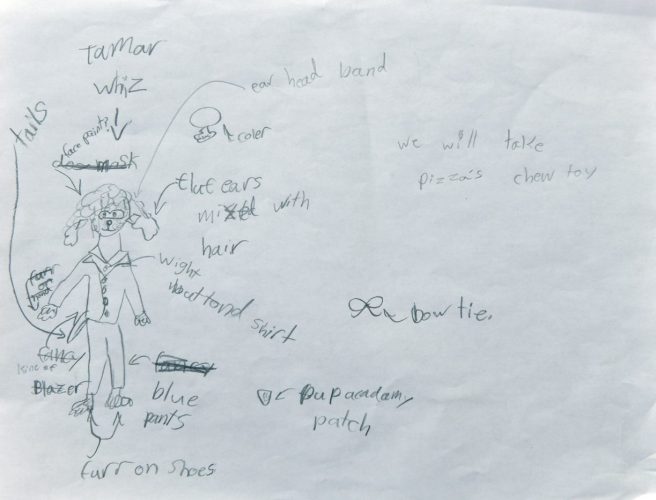 Tamar
whiz
ear head band
tails
face paint?
dog mask
coler
we will take
pizza's chew toy
flut ears
mixed with
hair
wight
buttond shirt
furr
on
bow tie.
line of
Blazer
blue
pants
pup acadamy
patch
furr on shoes